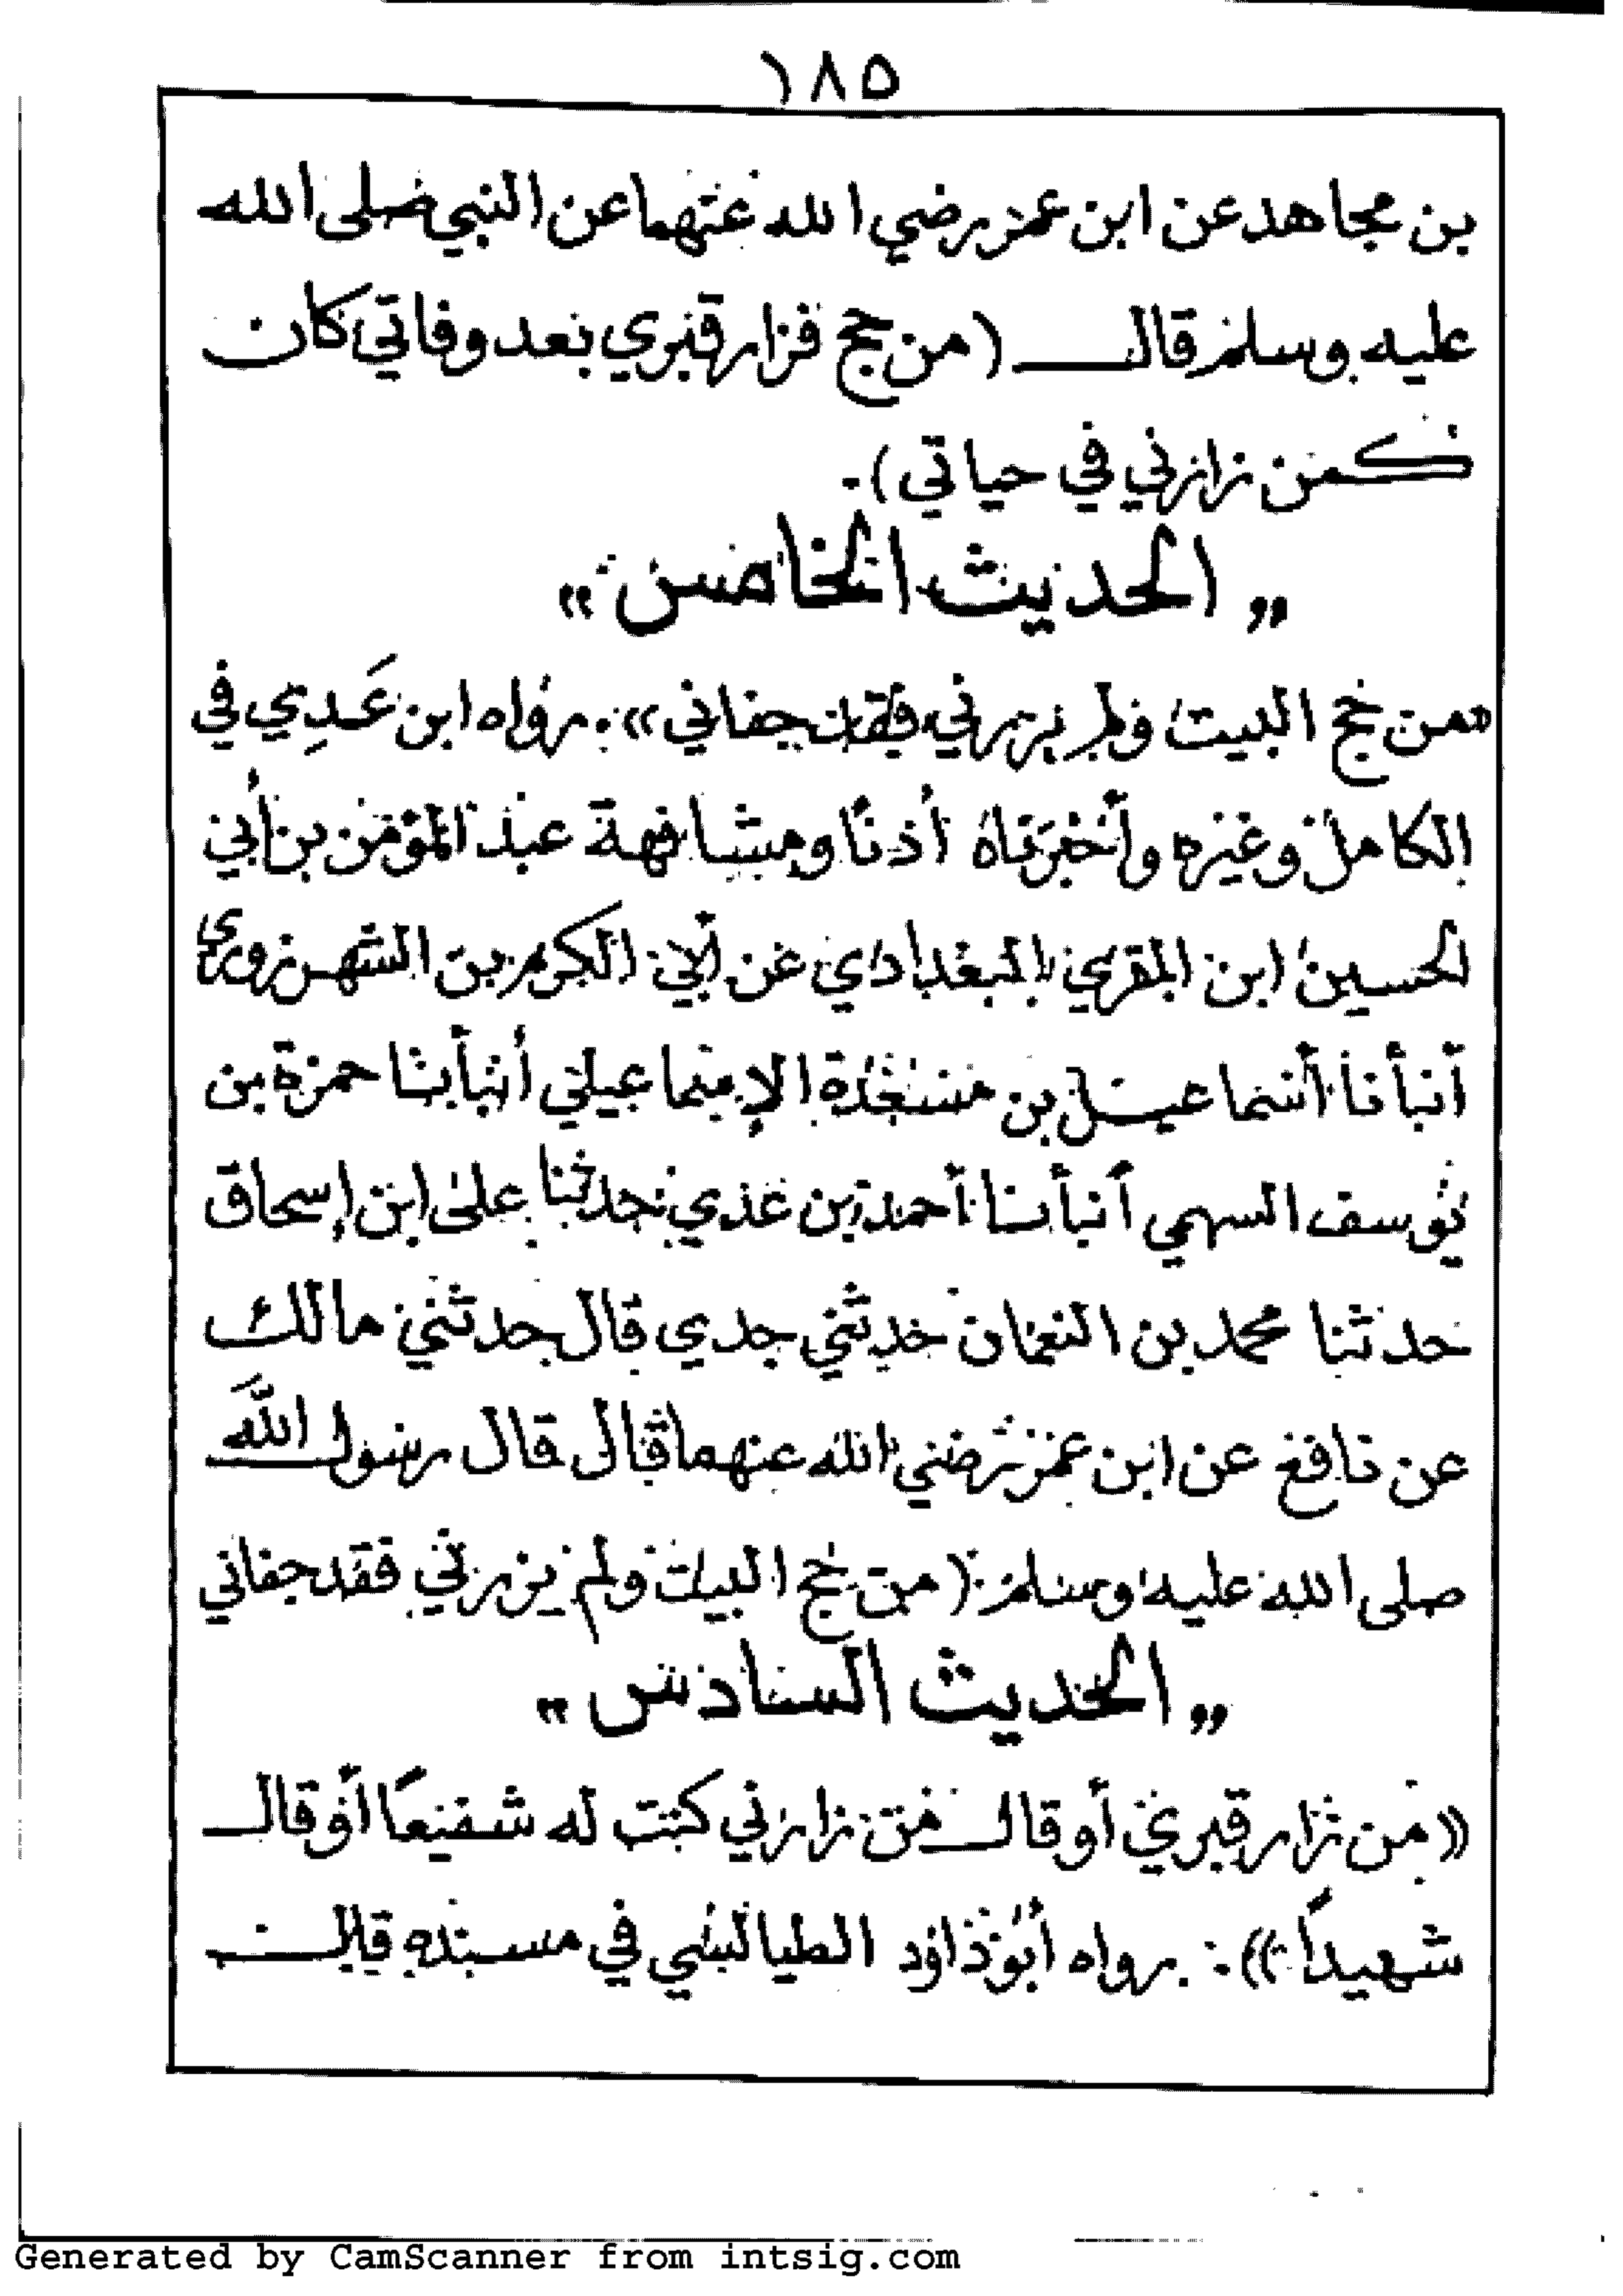 ١٨٥
بن مجاهد عن ابن عمر رضي الله عنهما عن النبي صلى الله
عليه وسلم قال (من حج فزار قبري بعد وفاتي كان
كمن زارني في حياتي).
" الحديث الخامس "
«من حج البيت ولم يزرني فقد جفاني»: رواه ابن عَدِي في
الكامل وغيره وأخبرناه أذنًا ومشافهة عبد المؤمن بن أبي
الحسين ابن المقري البغدادي عن أبي الكرم بن الشهرزوري
أنبأنا أسماعيل بن مسعدة الإسماعيلي أنبأنا حمزة بن
يوسف السهمي أنبأنا أحمد بن عدي حدثنا على ابن إسحاق
حدثنا محمد بن النعمان حدثني جدي قال حدثني مالك
عن نافع عن ابن عمر رضي الله عنهما قال قال رسول الله
صلى الله عليه وسلم (من حج البيت ولم يزرني فقد جفاني
" الحديث السادس "
«من زار قبري أو قال من زارني كنت له شفيعًا أو قال
شهيدًا»: رواه أبو داود الطيالسي في مسنده قال
Generated by CamScanner from intsig.com